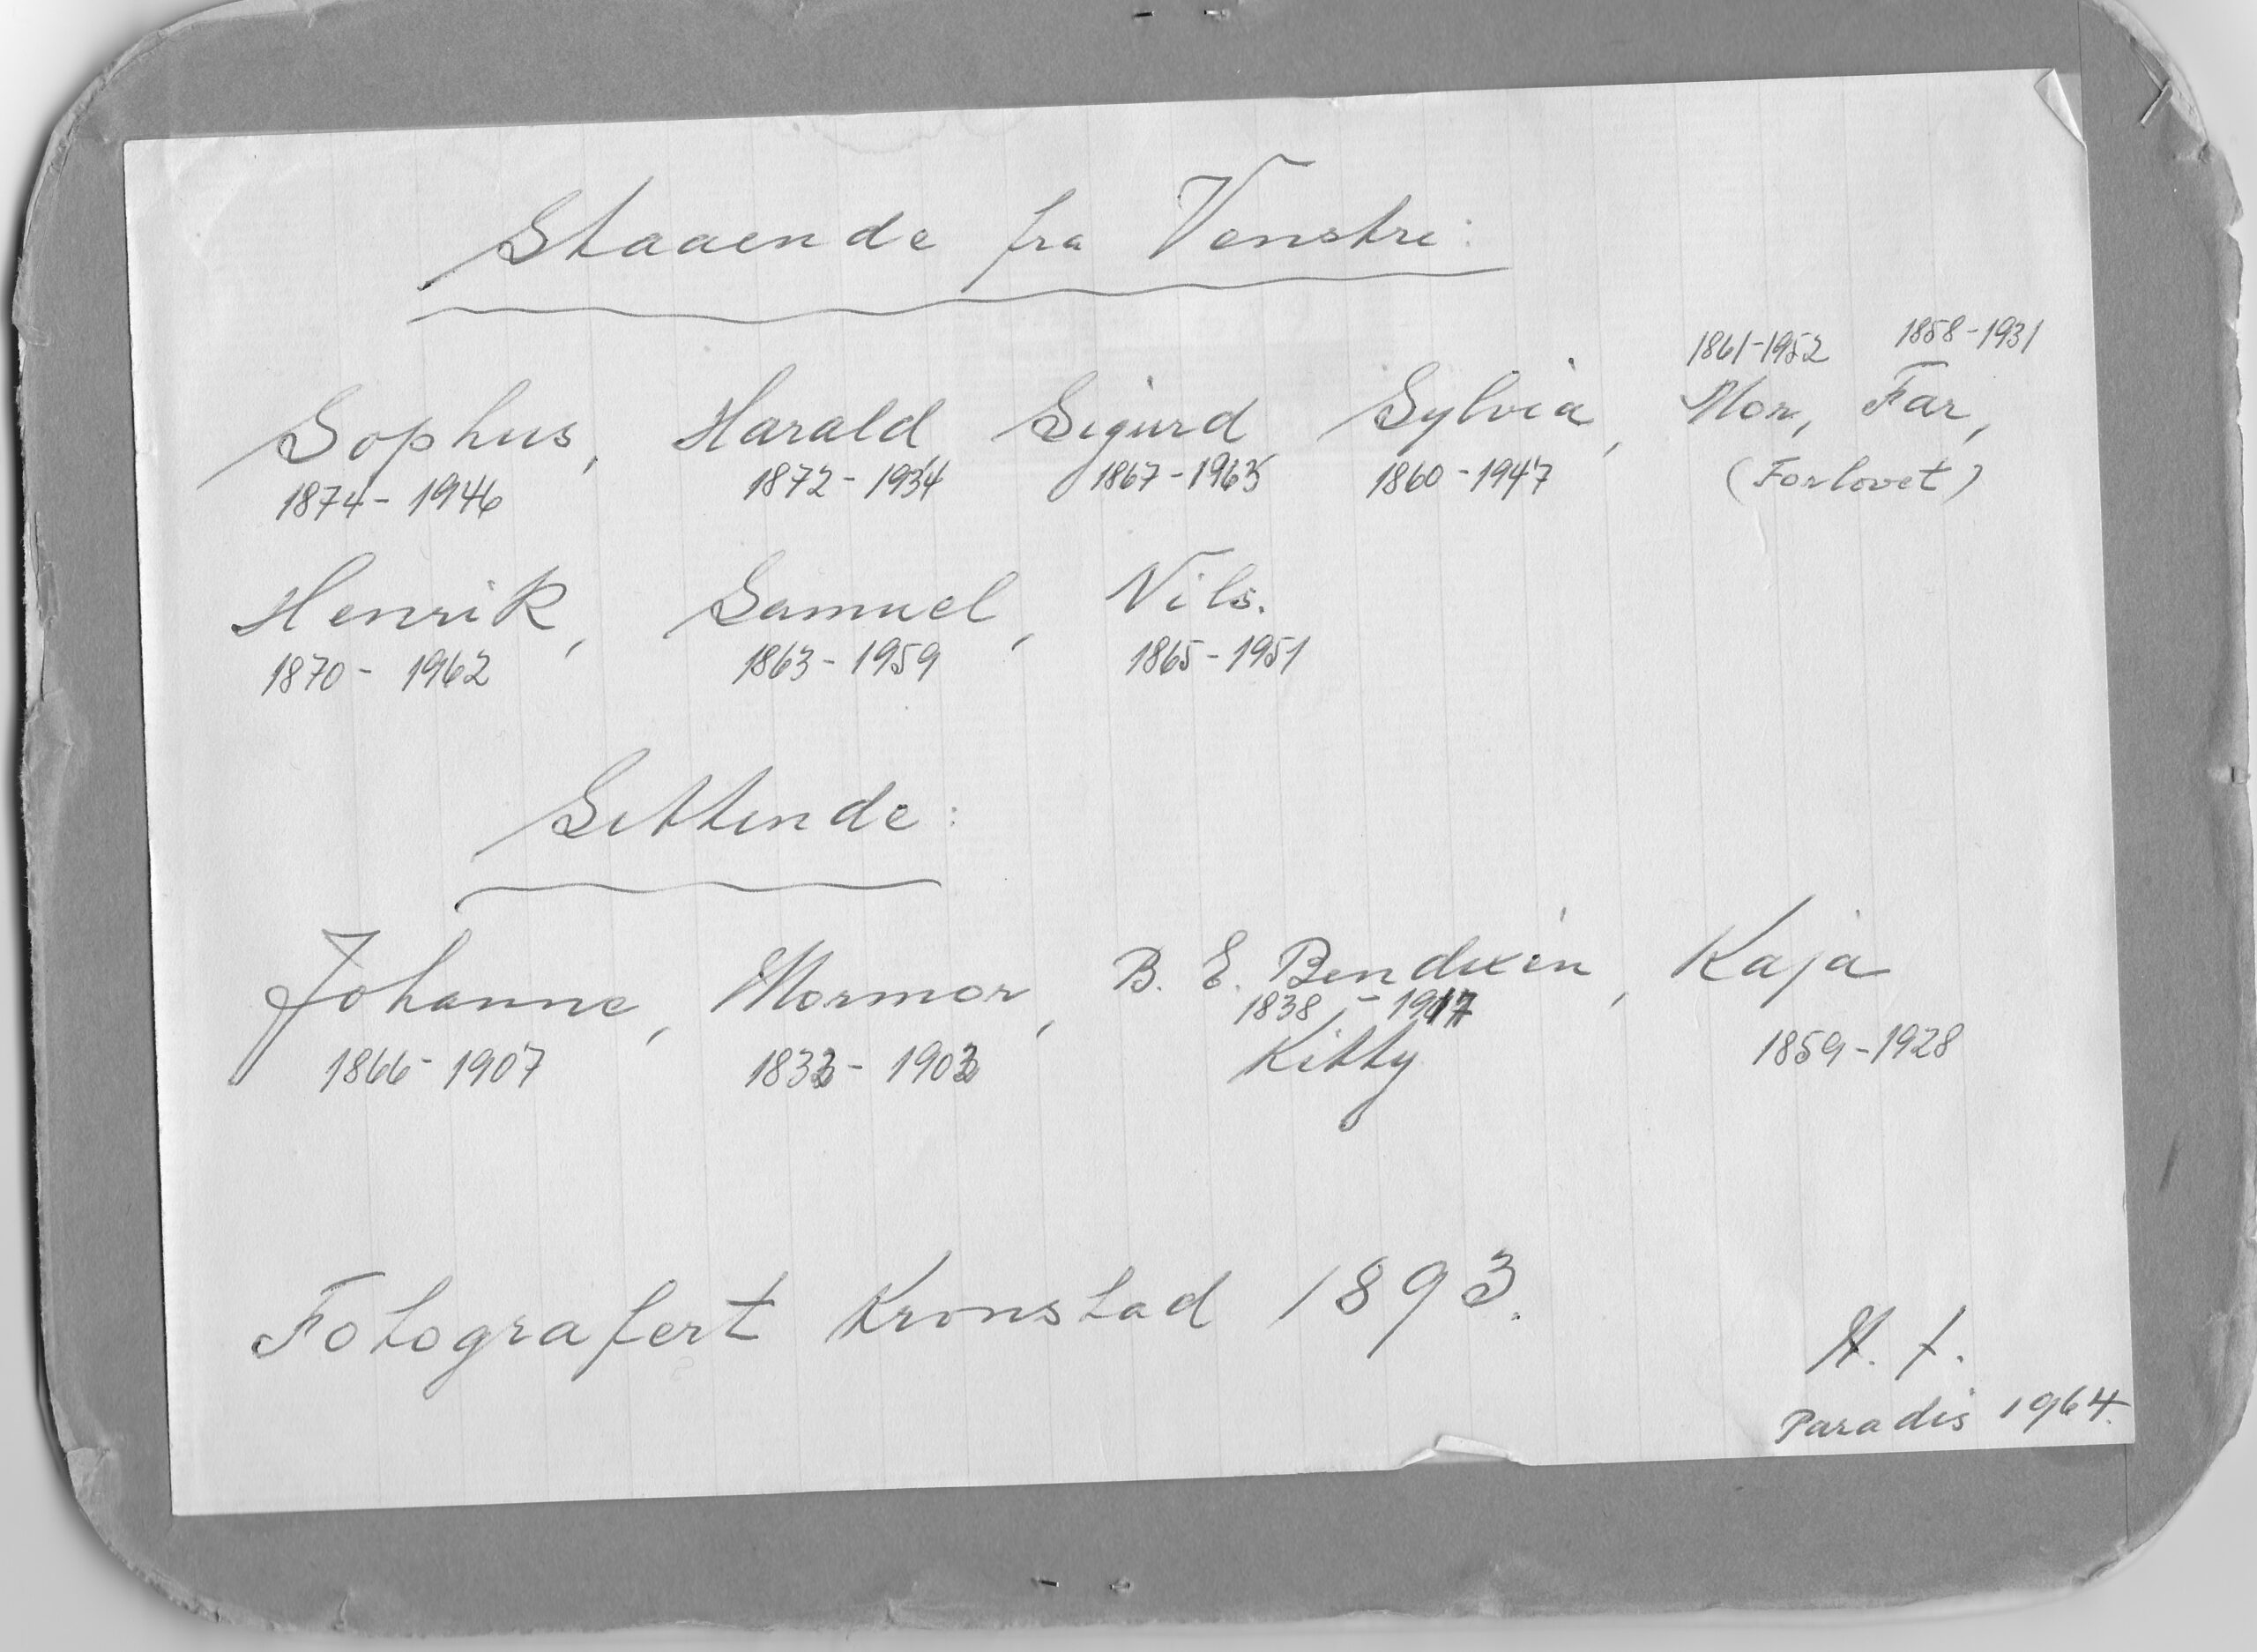 Staaende fra Venstre:
1861-1952 1858-1931
Sophus, Harald Sigurd Sylvia, Mor, Far,
1874- 1946 1872-1934 1867-1963 1860-1947 (Forlovet)
Henrik, Samuel, Nils.
1870- 1962 1863-1959 1865-1951
Sittende:
Johanne, Mormor, B. E. Bendixen, Kaja
1838 - 1917
1866-1907 1833- 1903 Kitty 1859-1928
Fotografert Kronstad 1893.
Paradis 1964.